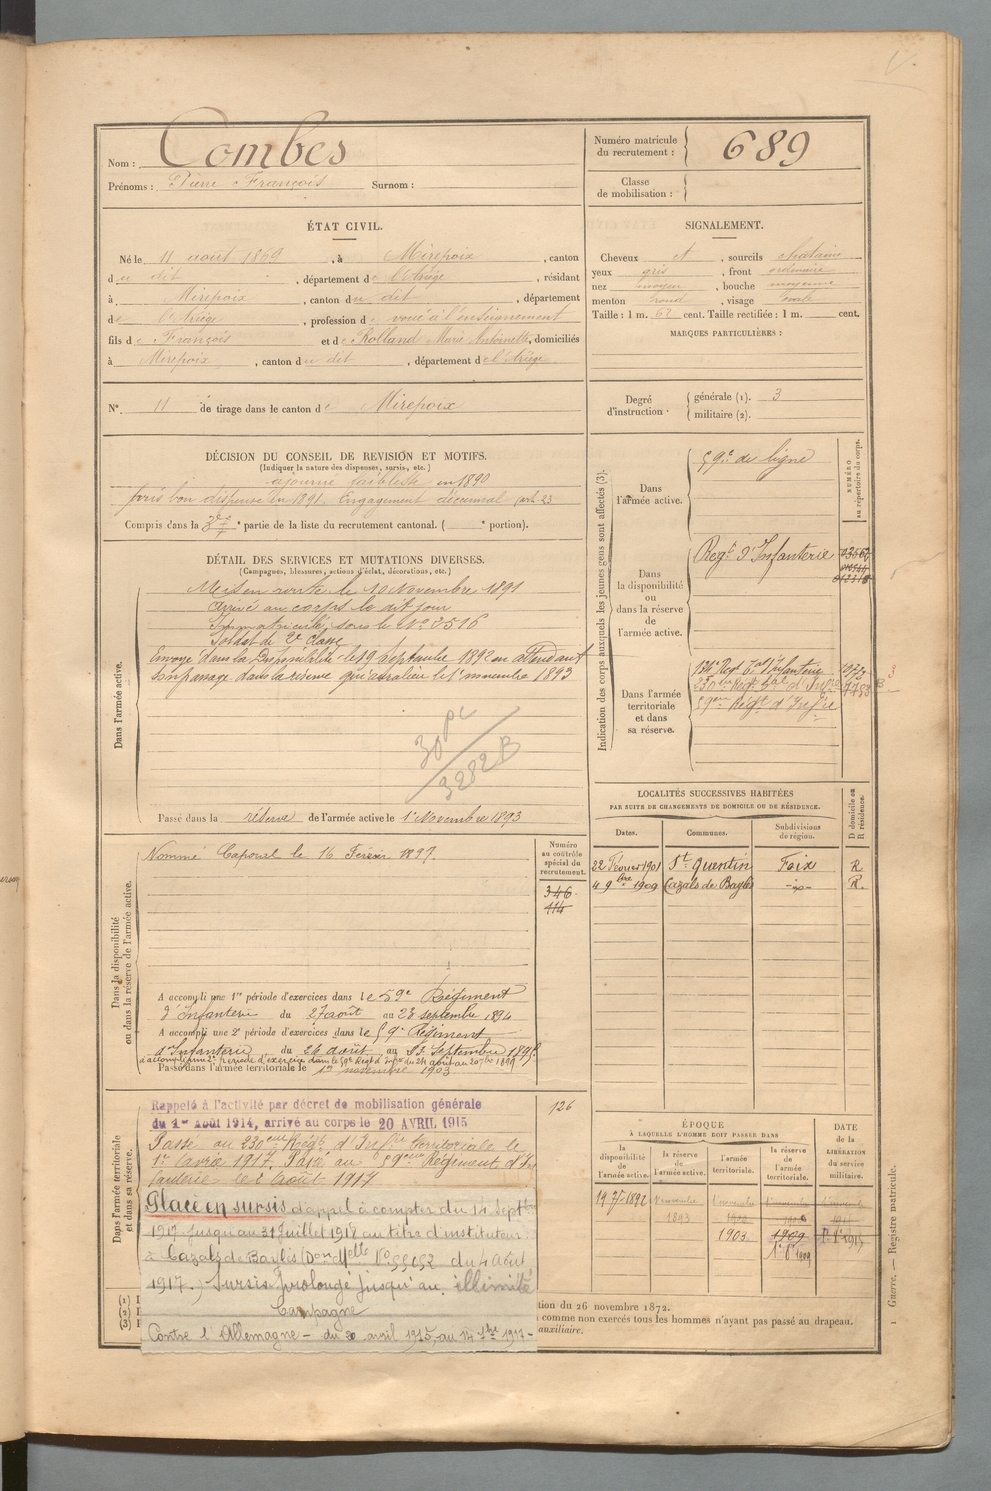 Nom : Combes
Prénoms : Pierre François Surnom :
Numéro matricule du recrutement : 689
Classe de mobilisation :
ÉTAT CIVIL.
Né le 11 août 1869, à Mirepoix, canton
du dit, département de l'Ariège, résidant
à Mirepoix, canton du dit, département
de l'Ariège, profession de voué à l'enseignement
fils de François et de Rolland Marie Antoinette, domiciliés
à Mirepoix, canton du dit, département de l'Ariège
N° 11 de tirage dans le canton de Mirepoix
SIGNALEMENT.
Cheveux et, sourcils chatains
yeux gris, front ordinaire
nez moyen, bouche moyenne
menton rond, visage ovale
Taille : 1 m. 62 cent. Taille rectifiée : 1 m. cent.
MARQUES PARTICULIÈRES :
Degré d'instruction : générale (1). 3
militaire (2).
DÉCISION DU CONSEIL DE REVISION ET MOTIFS.
(Indiquer la nature des dispenses, sursis, etc.)
ajourné faiblesse en 1890
puis bon dispensé en 1891. Engagement décennal art. 23
Compris dans la 3e partie de la liste du recrutement cantonal. ( e portion).
DÉTAIL DES SERVICES ET MUTATIONS DIVERSES.
(Campagnes, blessures, actions d'éclat, décorations, etc.)
Dans l'armée active.
Mis en route le 10 Novembre 1891
arrivé au corps le dit jour
Immatriculé sous le N° 3516
Soldat de 2e classe
Envoyé dans la Disponibilité le 19 Septembre 1892 en attendant
son passage dans la réserve qui aura lieu le 1er novembre 1893
30 pc
3282 B
Passé dans la réserve de l'armée active le 1er Novembre 1893
Indication des corps auxquels les jeunes gens sont affectés (3).
NUMÉRO au répertoire du corps.
Dans l'armée active.
59e de ligne
Dans la disponibilité ou dans la réserve de l'armée active.
Regt d'Infanterie
Dans l'armée territoriale et dans sa réserve.
134e Regt Tal d'Infanterie
230eme Regt Tal d'Infrie
59eme Regt d'Infrie
LOCALITÉS SUCCESSIVES HABITÉES
PAR SUITE DE CHANGEMENTS DE DOMICILE OU DE RÉSIDENCE.
Dates. Communes. Subdivisions de région. D domicile ou R résidence.
22 Février 1901 St Quentin Foix R.
4 9bre 1909 Cazals de Baylès -do- R.
Dans la disponibilité ou dans la réserve de l'armée active.
Nommé Caporal le 16 Février 1897.
Numéro au contrôle spécial du recrutement.
346
114
A accompli une 1re période d'exercices dans le 59e Régiment
d'Infanterie du 27 août au 23 septembre 1894
A accompli une 2e période d'exercices dans le 59e Régiment
d'Infanterie du 26 août au 23 Septembre 189
Passé dans l'armée territoriale le 1er novembre 1903
Dans l'armée territoriale et dans sa réserve.
Rappelé à l'activité par décret de mobilisation générale
du 1er Août 1914, arrivé au corps le 20 AVRIL 1915
126
Passé au 230eme Régt d'Infrie territoriale le
1er avril 1917. Passé au 59eme Régiment d'In
fanterie le 2 Août 1917
Placé en sursis d'appel à compter du 14 Septbre
1917 jusqu'au 31 Juillet 1918 au titre d'instituteur
à Cazals de Baylès (Don Melle N° 55152 du 4 Août
1917.) Sursis prolongé jusqu'au illimité
Campagne
Contre l'Allemagne – du 20 avril 1915, au 14 7bre 1917 –
ÉPOQUE
À LAQUELLE L'HOMME DOIT PASSER DANS
la disponibilité de l'armée active. la réserve de l'armée active. l'armée territoriale. la réserve de l'armée territoriale.
DATE de la LIBÉRATION du service militaire.
19 7bre 1892 1er novembre 1893
1903. 1909
(1) I
(2) I
(3) I
tion du 26 novembre 1872.
comme non exercés tous les hommes n'ayant pas passé au drapeau.
auxiliaire.
Guerre. — Registre matricule.